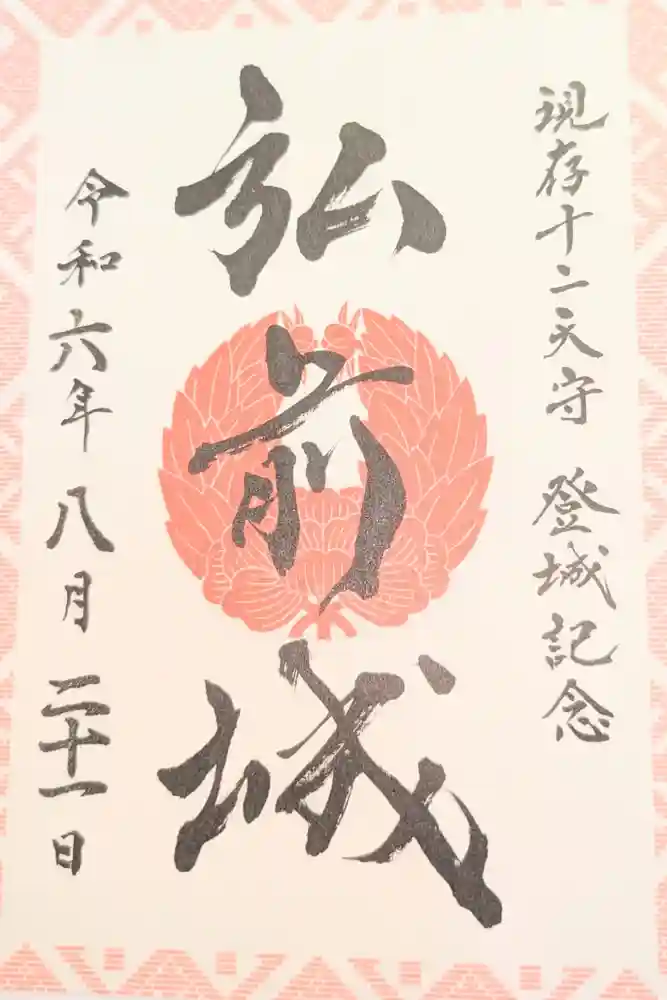 現存十二天守 登城記念
弘前城
令和六年 八月 二十一日